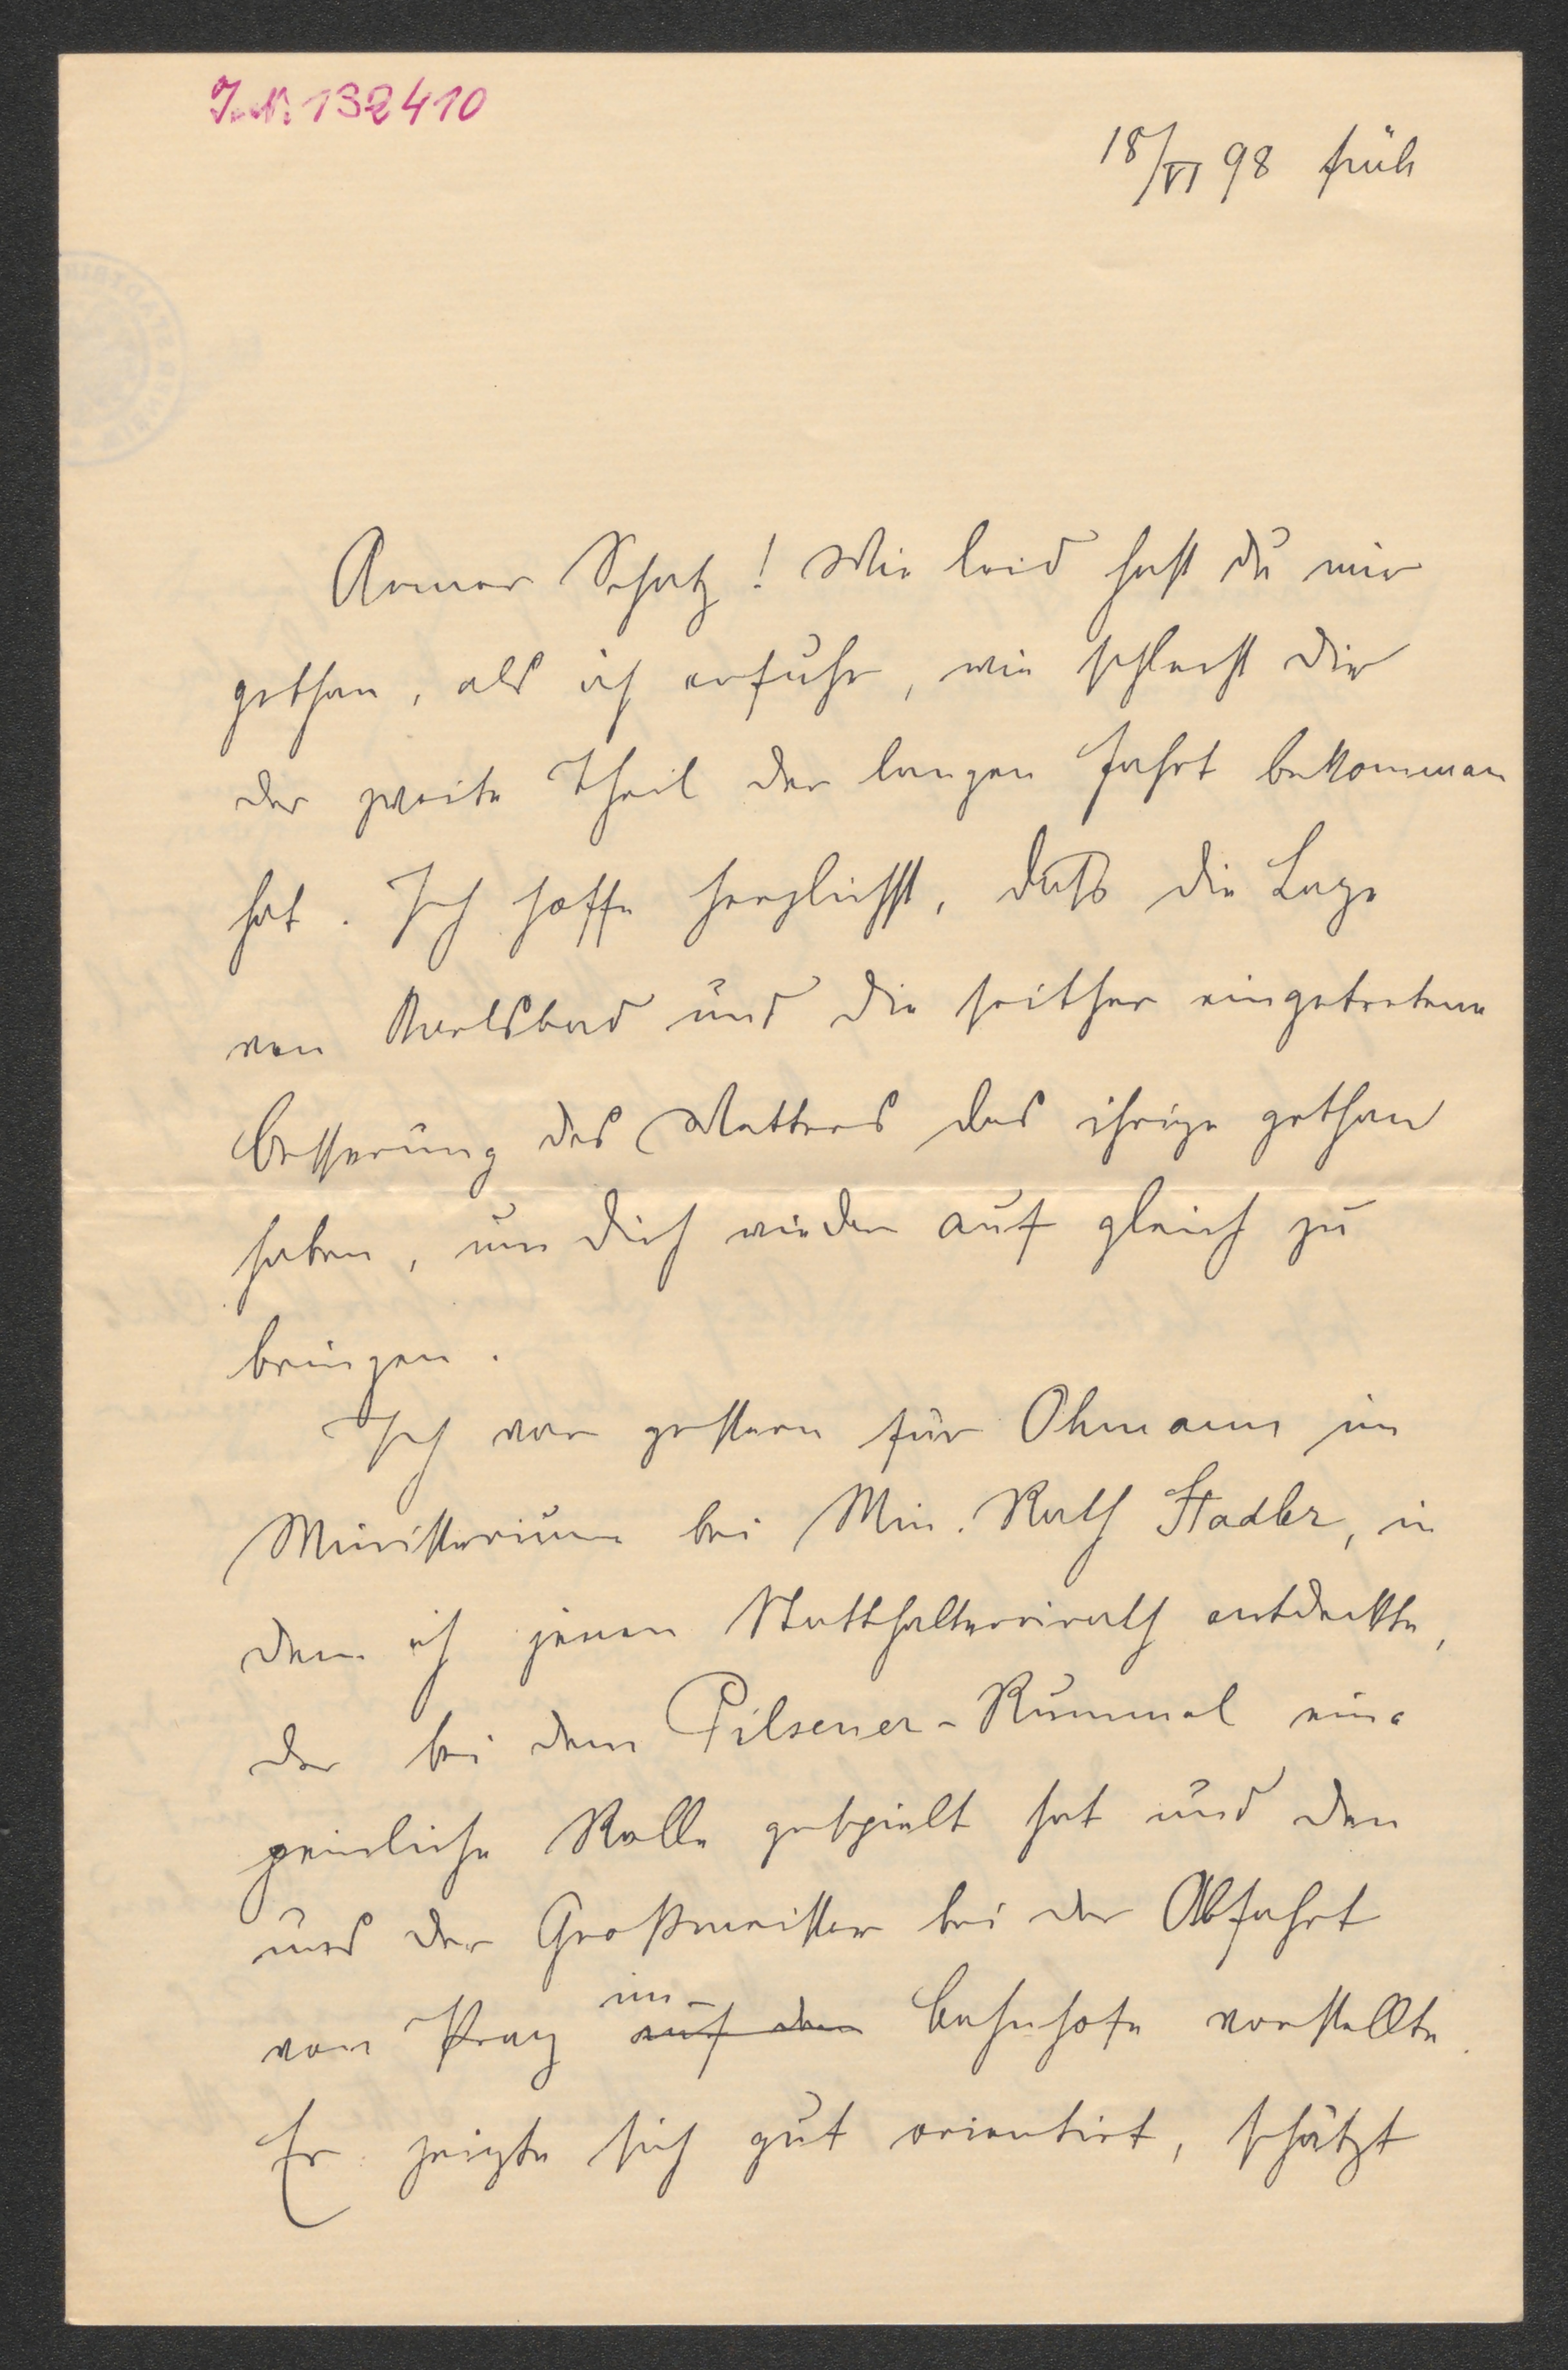 J.N. 132410
18/VI 98 früh
Armer Schatz! Wie leid hast du mir
gethan, als ich erfuhr, wie schlecht dir
der zweite Theil der langen Fahrt bekommen
hat. Ich hoffe herzlichst, daß die Lage
von Karlsbad und die seither eingetretene
Besserung des Wetters das ihrige gethan
haben, um dich wieder auf gleich zu
bringen.
Ich war gestern für Ohmann im
Ministerium bei Min. Rath Stadler, in
dem ich jenen Statthaltereirath entdeckte,
der bei dem Pilsener-Rummel eine
peinliche Rolle gespielt hat und den
uns der Großmeister bei der Abfahrt
von Prag im auf dem Bahnhofe vorstellte.
Er zeigte sich gut orientirt, schätzt